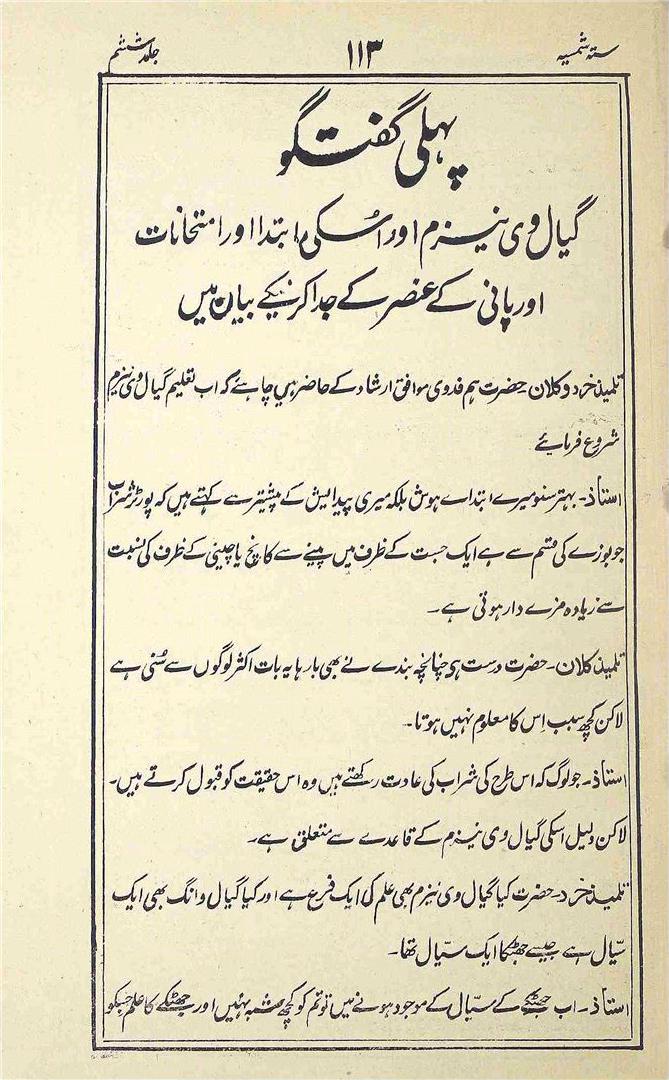 ستہ شمسیہ ۱۱۳ جلد ششم
پہلی گفتگو
گیال وی نیزم اور اسکی ابتدا اور امتحانات
اور پانی کے عنصر کے جدا کرنیکے بیان میں
تلمیذ خرد و کلان۔ حضرت ہم فدوی موافق ارشاد کے حاضر ہیں چاہئے کہ اب تعلیم گیال وی نیزم
شروع فرمائے
استاذ۔ بہتر سنو میرے ابتداے ہوش بلکہ میری پیدایش کے پیشتر سے کہتے ہیں کہ پورٹر شراب
جو بوزے کی قسم سے ہے ایک جست کے ظرف میں پینے سے کانچ یا چینی کے ظرف کی نسبت
سے زیادہ مزے دار ہوتی ہے۔
تلمیذ کلان۔ حضرت درست ہی چنانچہ بندے نے بھی بارہا یہ بات اکثر لوگوں سے سُنی ہے
لاکن کچھ سبب اِس کا معلوم نہیں ہوتا۔
استاذ۔ جو لوگ کہ اس طرح کی شراب کی عادت رکھتے ہیں وہ اس حقیقت کو قبول کرتے ہیں۔
لاکن دلیل اسکی گیال وی نیزم کے قاعدے سے متعلق ہے۔
تلمیذ خرد۔ حضرت کیا گیال وی نیزم بھی علم کی ایک فرع ہے اور کیا گیال وانگ بھی ایک
سیّال ہے جیسے جھٹکا ایک سیّال تھا۔
استاذ۔ اب جھٹکے کے سیّال کے موجود ہونے میں تو تم کو کچھ شبہ نہیں اور جھٹکے کا علم جسکو